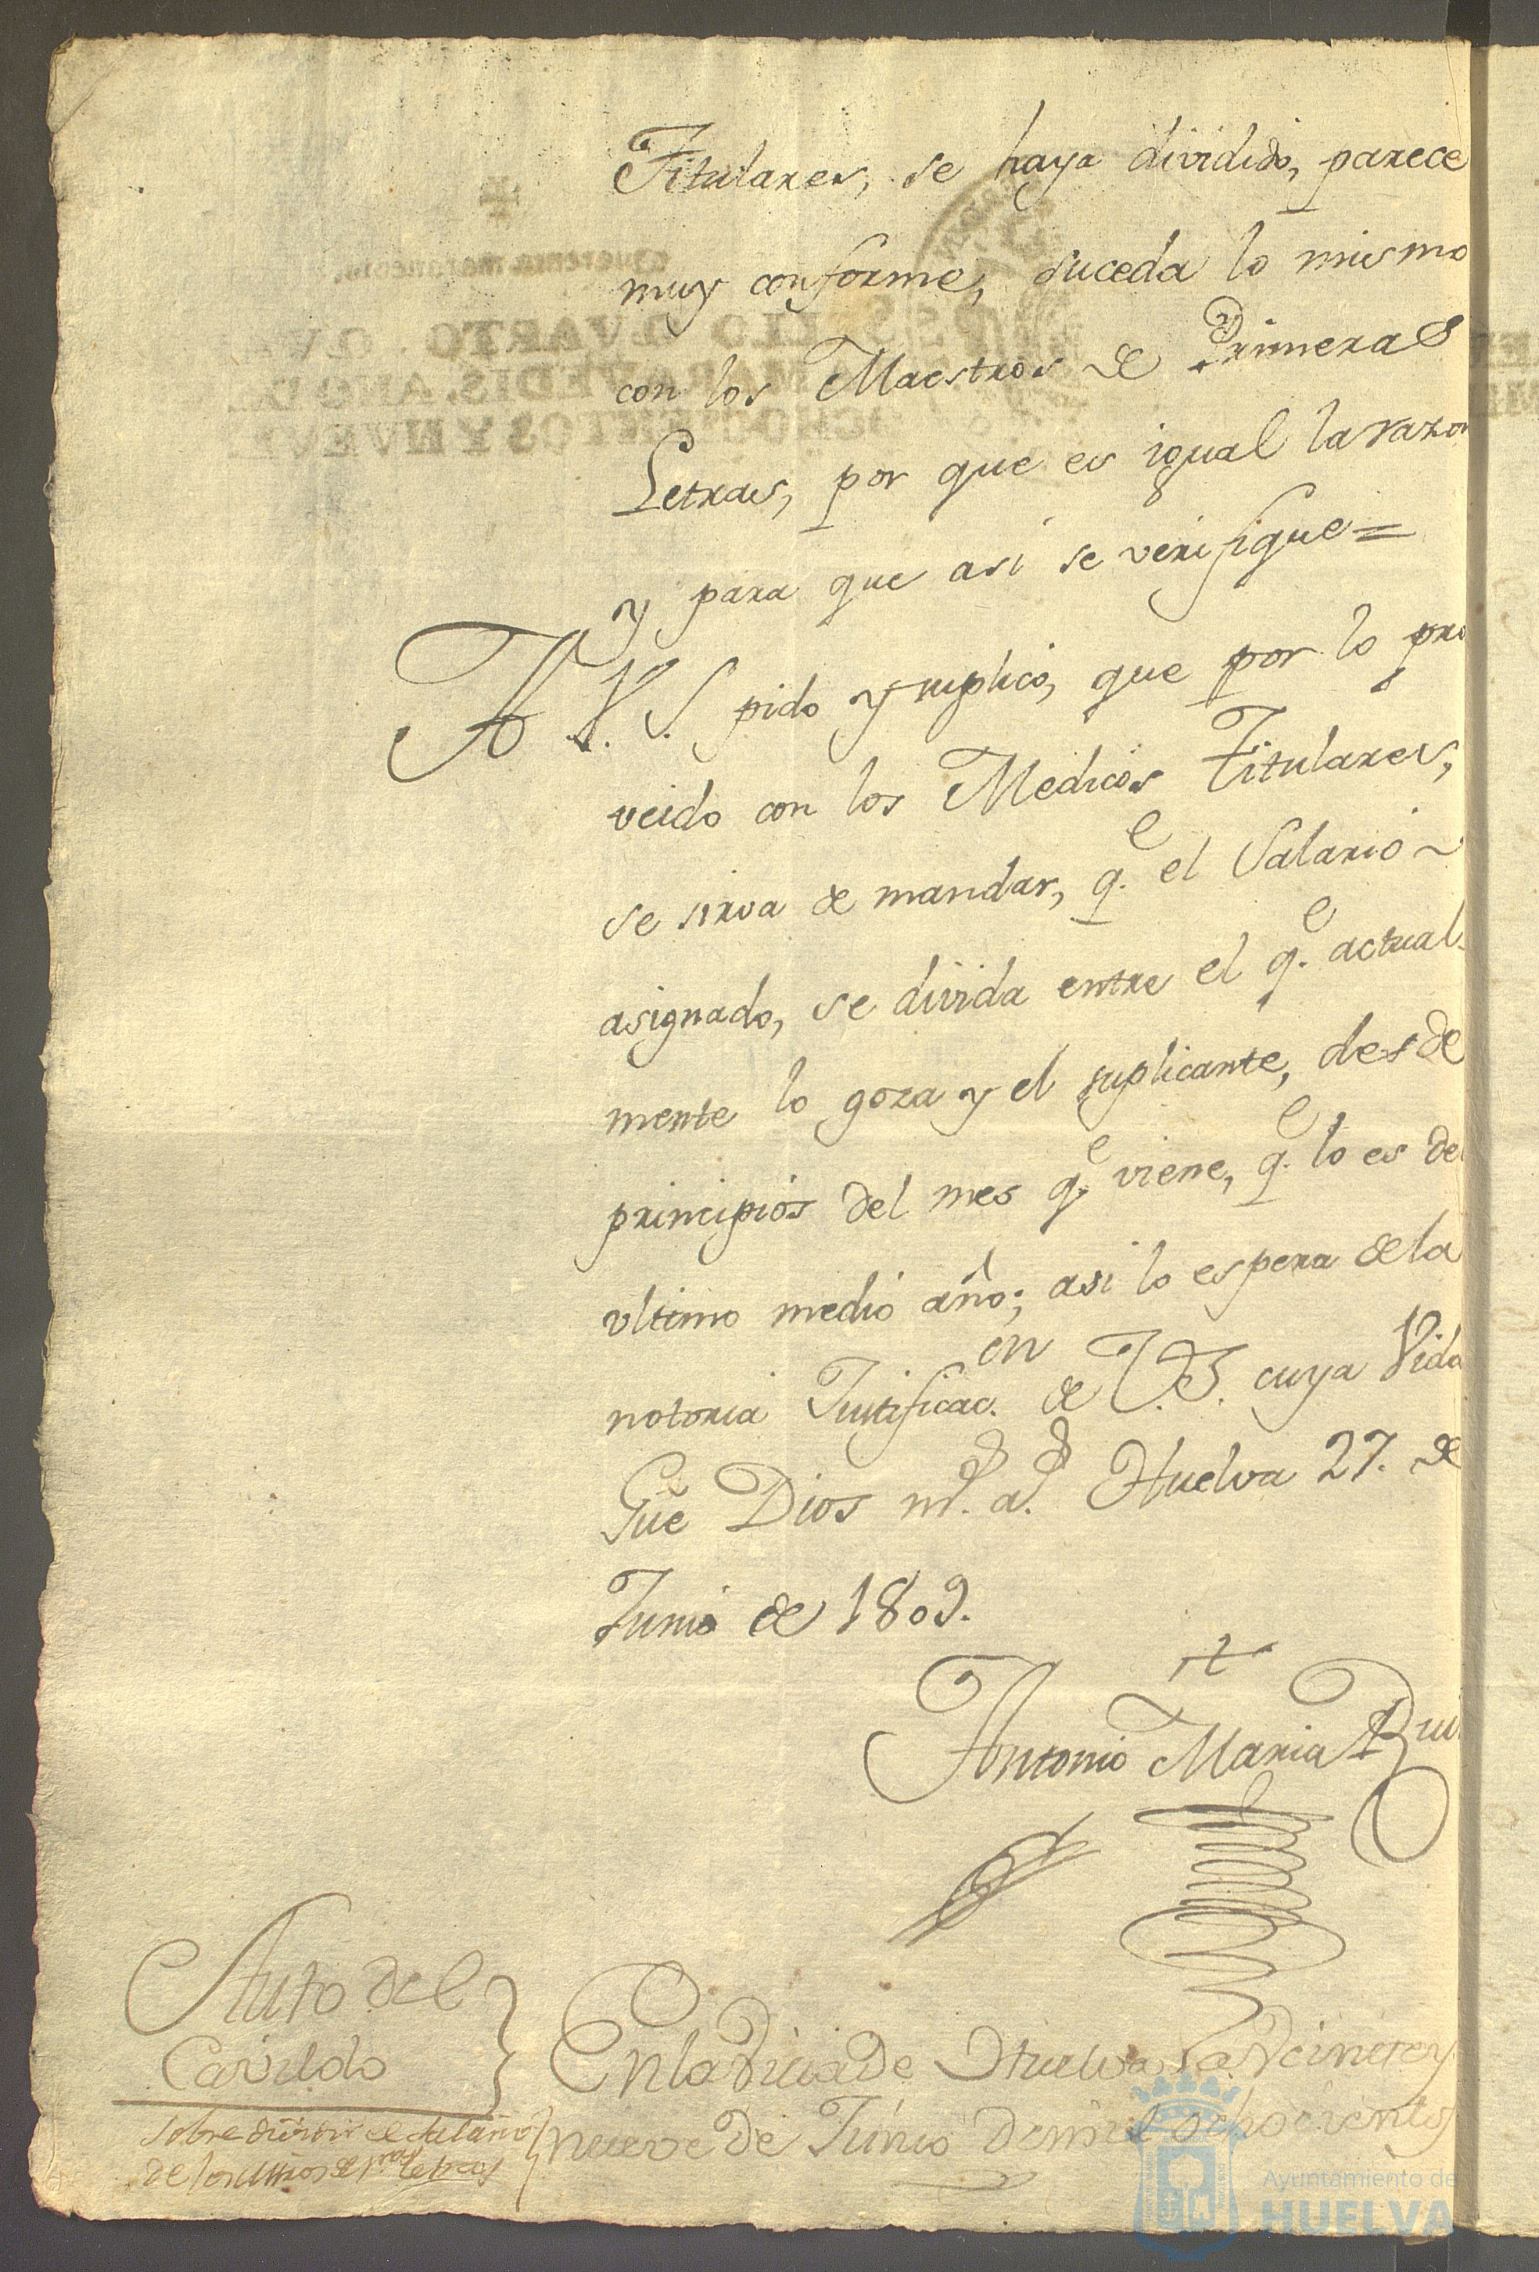 Titulares, se haya dividido, parece
muy conforme, suceda lo mismo
con los Maestros de Primeras
Letras, por que es igual la razon
y para que asi se verifique =
A V. S. pido y suplico, que por lo pro
veido con los Medicos Titulares,
se sirva de mandar, q.e el Salario ~
asignado, se divida entre el q.e actual
mente lo goza y el suplicante, desde
principios del mes q.e viene, q.e lo es del
ultimo medio año; asi lo espera de la
notoria Justificac.on de V.S. cuya Vida
Gue Dios m.s a.s Huelva 27. de
Junio de 1809.
Antonio Maria Rui
Auto del
Cavildo
sobre dividir el salario
de los Mros de p.ras letras
En la Villa De Huelva en Veinte y
nueve de Junio de mil ochocientos
Ayuntamiento de
HUELVA